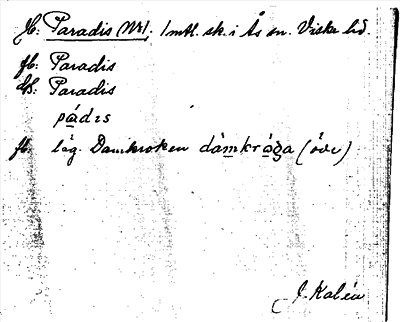 Jb: Paradis Nr 1. 1 mtl. sk. i Ås sn. Viske hd.
fb: Paradis
Us: Paradis
pádis
fb. låg. Damkroken dàmkróga (öde)
J. Kalén